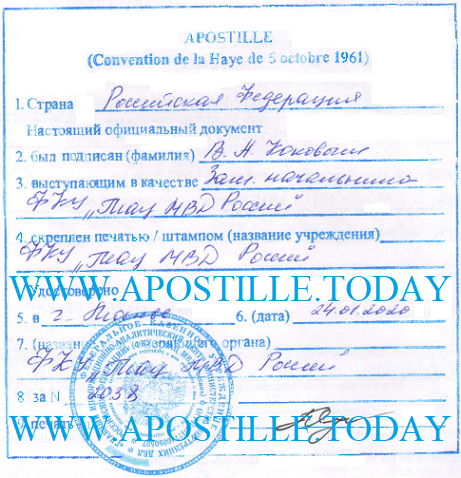 APOSTILLE
(Convention de la Haye de 5 octobre 1961)
1. Страна Российская Федерация
Настоящий официальный документ
2. был подписан (фамилия) В. А.
3. выступающим в качестве Зам. начальника
ФКУ „ГИАЦ МВД России“
4. скреплен печатью / штампом (название учреждения)
ФКУ „ГИАЦ МВД России“
WWW.APOSTILLE.TODAY
Удостоверено
5. в г. Москве 6. (дата) 24.01.2020
7. (название органа)
ФКУ „ГИАЦ МВД России“
8 за N 2038
WWW.APOSTILLE.TODAY
9. печать